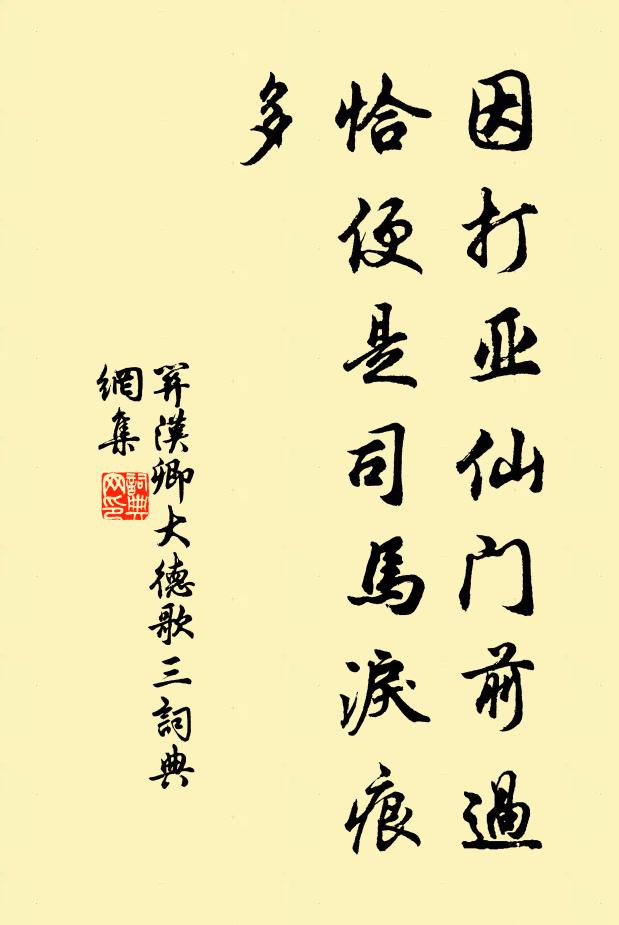 因打亚仙门前過
恰便是司馬淚痕
多
関漢卿大德歌三詞典
網集
詞典
网印